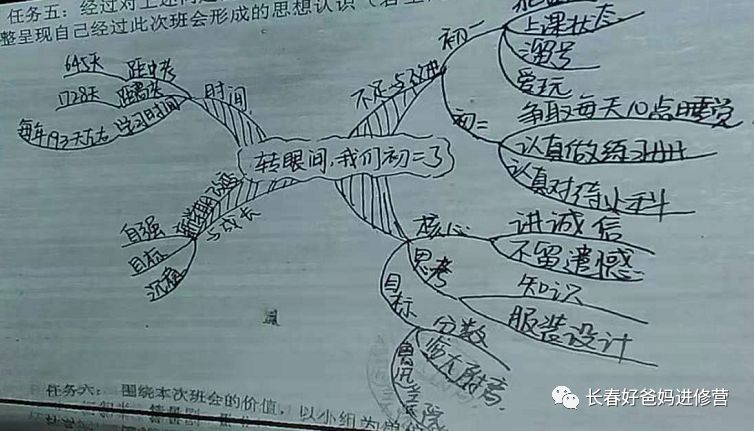 任务五：经过对上述问题
整呈现自己经过此次班会形成的思想认识
645天 距中考
1728天 距高考
每年193天左右 学习时间
时间
不足与改进
初一
上课状态
溜号
爱玩
初二
争取每天10点睡觉
认真做练习册
认真对待小科
转眼间,我们初二了
与成长
自强
目标
沉稳
核心
讲诚信
不留遗憾
思考
知识
服装设计
目标
分数
鲁迅美院
任务六：围绕本次班会的价值，以小组为单位
长春好爸妈进修营